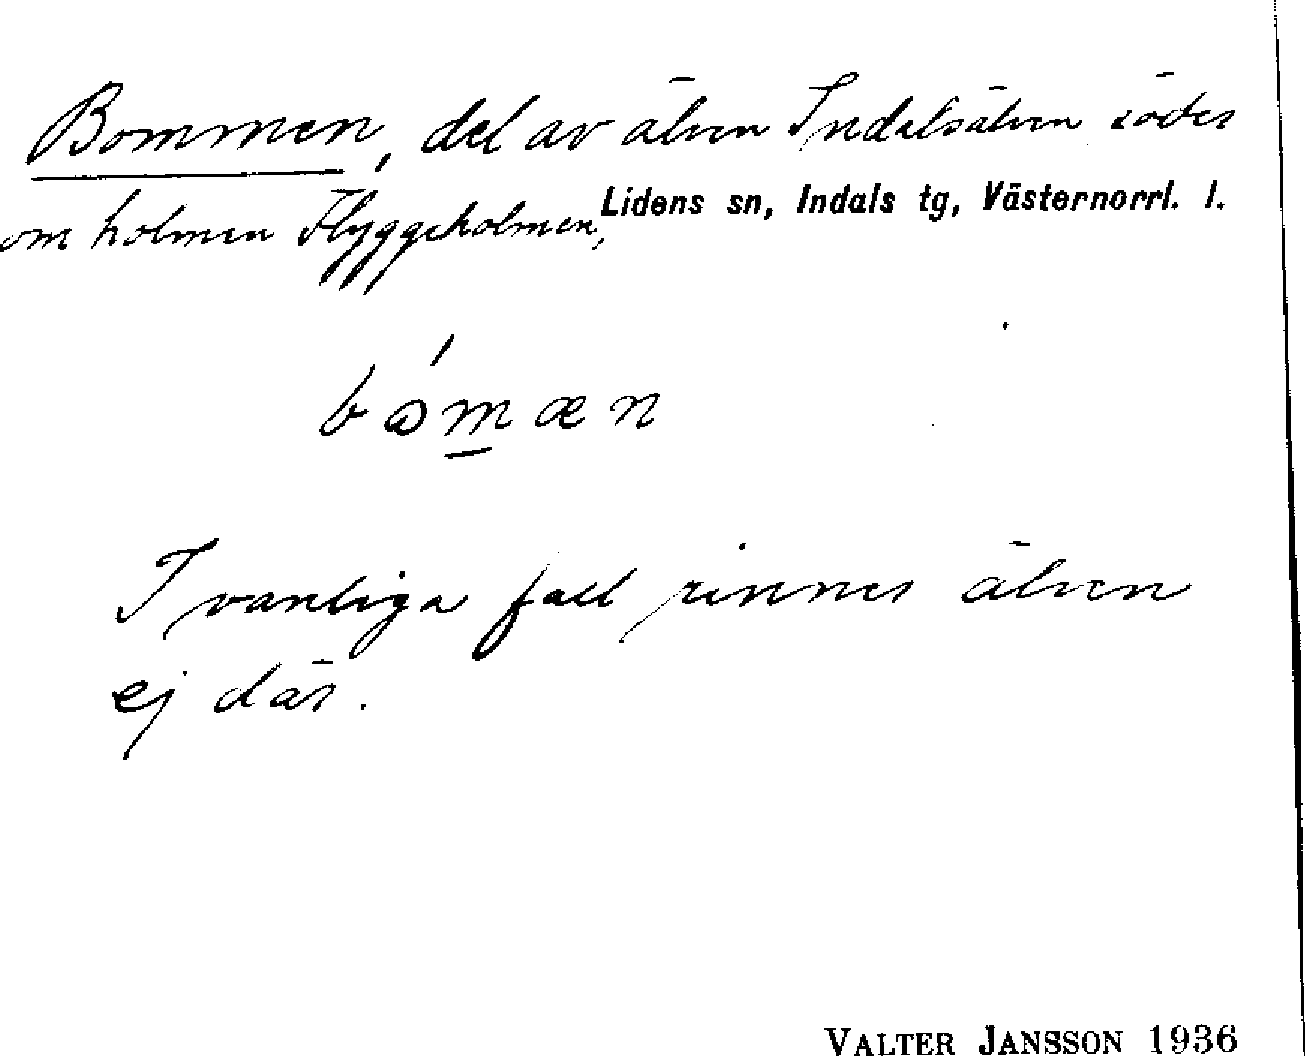 Bommen, del av älven Indalsälven söder
om holmen Flyggeholmen, Lidens sn, Indals tg, Västernorrl. l.
båmæn
I vanliga fall rinner älven
ej där.
VALTER JANSSON 1936